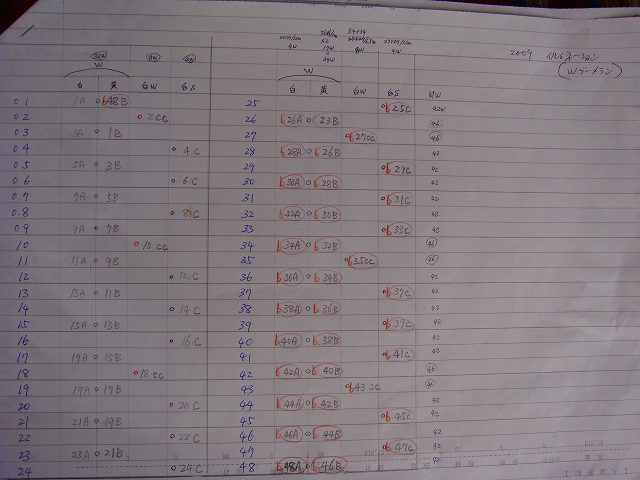 2009 イルミネーション
(Wラーメラン)
W W
白 黄 白W 白S 白 黄 白W 白S
01 1A 48B 25 25C 42W
02 2CC 26 26A 23B 46
03 3A 1B 27 27CC 46
04 4C 28 28A 26B 42
05 5A 3B 29 29C 42
06 6C 30 30A 28B 42
07 7A 5B 31 31C 42
08 8C 32 32A 30B 42
09 9A 7B 33 33C 42
10 10CC 34 34A 32B 46
11 11A 9B 35 35CC 46
12 12C 36 36A 34B 42
13 13A 11B 37 37C 42
14 14C 38 38A 36B 42
15 15A 13B 39 39C 42
16 16C 40 40A 38B 42
17 17A 15B 41 41C 42
18 18CC 42 42A 40B 46
19 19A 17B 43 43CC 46
20 20C 44 44A 42B 42
21 21A 19B 45 45C 42
22 22C 46 46A 44B 42
23 23A 21B 47 47C 42
24 24C 48 48A 46B 42